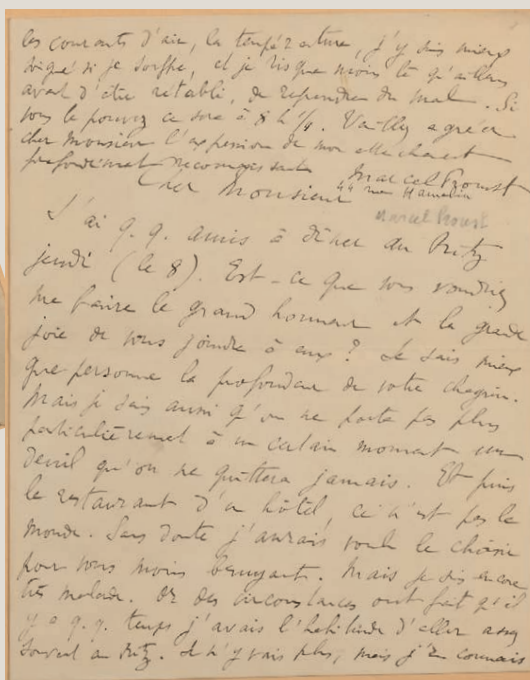 les courants d'air, la température, j'y suis mieux
soigné si je souffre, et je risque moins là qu'ailleurs
avant d'être rétabli, de reprendre du mal. Si
vous le pouvez ce sera à 8 h ¼. Veuillez agréer
cher Monsieur l'expression de mon attachement
profondément reconnaissant
Marcel Proust
44 rue Hamelin
Marcel Proust
Cher Monsieur
J'ai q.q. amis à dîner au Ritz
jeudi (le 8). Est-ce que vous voudriez
me faire le grand honneur et la grande
joie de vous joindre à eux ? Je sais mieux
que personne la profondeur de votre chagrin.
Mais je sais aussi qu'on ne porte pas plus
particulièrement à un certain moment un
deuil qu'on ne quittera jamais. Et puis
le restaurant d'un hôtel ce n'est pas le
monde. Sans doute j'aurais voulu le choisir
pour vous moins bruyant. Mais je suis encore
très malade. Or des circonstances ont fait qu'il
y a q.q. temps j'avais l'habitude d'aller assez
souvent au Ritz. Je n'y vais plus, mais j'en connais